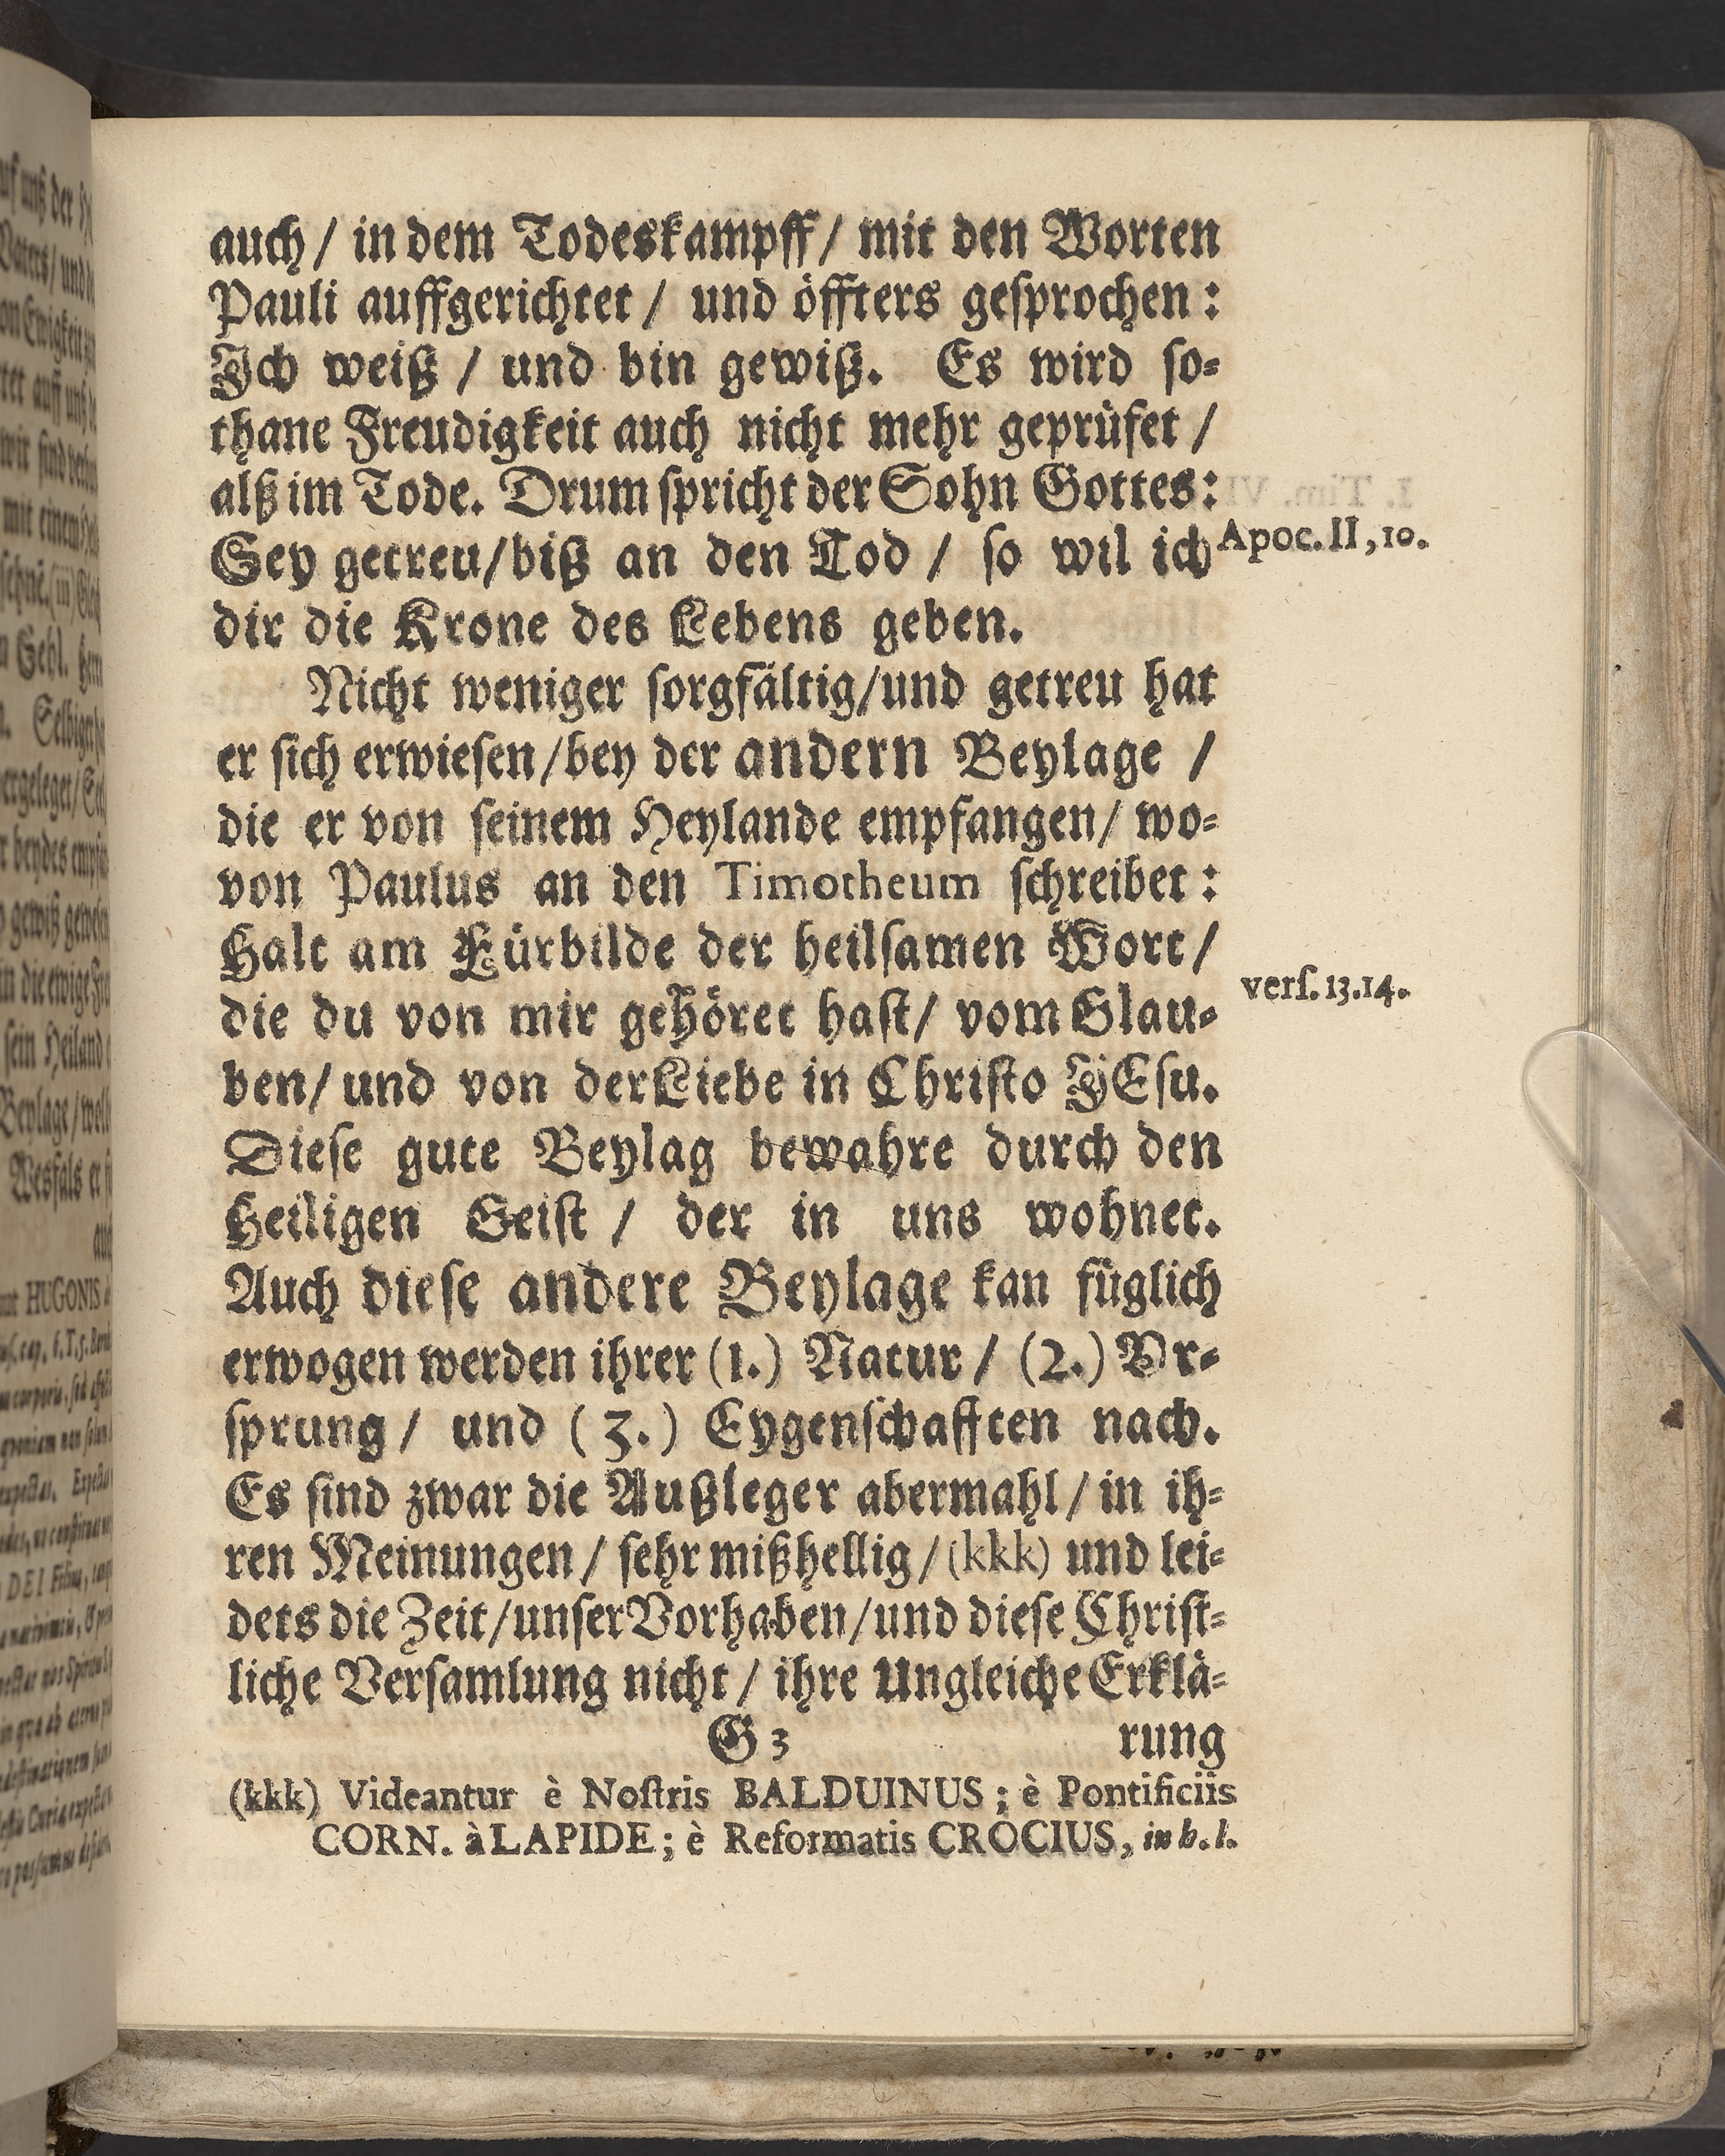 auch / in dem Todeskampff / mit den Worten
Pauli auffgerichtet / und öffters gesprochen :
Ich weiß / und bin gewiß. Es wird so⸗
thane Freudigkeit auch nicht mehr geprüfet /
alß im Tode. Drum spricht der Sohn Gottes:
Sey getreu / biß an den Tod / so wil ich
Apoc. II, 10.
dir die Krone des Lebens geben.
Nicht weniger sorgfältig / und getreu hat
er sich erwiesen / bey der andern Beylage /
die er von seinem Heylande empfangen / wo⸗
von Paulus an den Timotheum schreibet :
Halt am Fürbilde der heilsamen Wort /
die du von mir gehöret hast / vom Glau⸗
vers. 13.14.
ben / und von der Liebe in Christo JEsu.
Diese gute Beylag bewahre durch den
Heiligen Geist / der in uns wohnet.
Auch diese andere Beylage kan füglich
erwogen werden ihrer (1.) Natur / (2.) Vr⸗
sprung / und (3.) Eygenschafften nach.
Es sind zwar die Außleger abermahl / in ih⸗
ren Meinungen / sehr mißhellig / (kkk) und lei⸗
dets die Zeit / unser Vorhaben / und diese Christ⸗
liche Versamlung nicht / ihre Ungleiche Erklä⸗
G 3 rung
(kkk) Videantur è Nostris BALDUINUS ; è Pontificiis
CORN. à LAPIDE ; è Reformatis CROCIUS, in h. l.